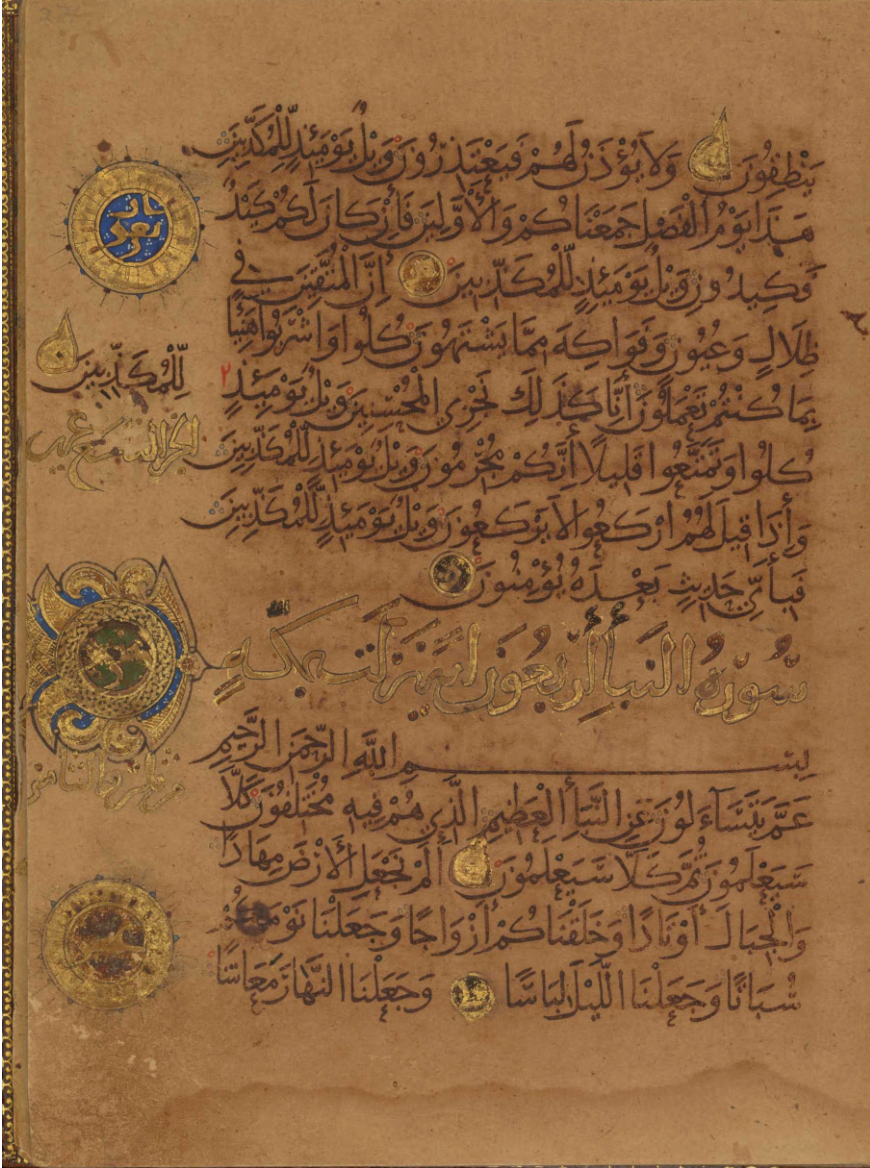 يَنْطِقُونَ وَلَا يُؤْذَنُ لَهُمْ فَيَعْتَذِرُونَ وَيْلٌ يَوْمَئِذٍ لِّلْمُكَذِّبِينَ
هَذَا يَوْمُ الْفَصْلِ جَمَعْنَاكُمْ وَالْأَوَّلِينَ فَإِنْ كَانَ لَكُمْ كَيْدٌ
فَكِيدُونِ وَيْلٌ يَوْمَئِذٍ لِّلْمُكَذِّبِينَ إِنَّ الْمُتَّقِينَ فِي
ظِلَالٍ وَعُيُونٍ وَفَوَاكِهَ مِمَّا يَشْتَهُونَ كُلُوا وَاشْرَبُوا هَنِيئًا
بِمَا كُنْتُمْ تَعْمَلُونَ إِنَّا كَذَلِكَ نَجْزِي الْمُحْسِنِينَ وَيْلٌ يَوْمَئِذٍ ٢
لِّلْمُكَذِّبِينَ
كُلُوا وَتَمَتَّعُوا قَلِيلًا إِنَّكُمْ مُّجْرِمُونَ وَيْلٌ يَوْمَئِذٍ لِّلْمُكَذِّبِينَ
وَإِذَا قِيلَ لَهُمُ ارْكَعُوا لَا يَرْكَعُونَ وَيْلٌ يَوْمَئِذٍ لِّلْمُكَذِّبِينَ
فَبِأَيِّ حَدِيثٍ بَعْدَهُ يُؤْمِنُونَ
سُورَةُ النَّبَأِ أَرْبَعُونَ آيَةً نَزَلَتْ بِمَكَّةَ
بِسْمِ اللَّهِ الرَّحْمَنِ الرَّحِيمِ
عَمَّ يَتَسَاءَلُونَ عَنِ النَّبَأِ الْعَظِيمِ الَّذِي هُمْ فِيهِ مُخْتَلِفُونَ كَلَّا
سَيَعْلَمُونَ ثُمَّ كَلَّا سَيَعْلَمُونَ أَلَمْ نَجْعَلِ الْأَرْضَ مِهَادًا
وَالْجِبَالَ أَوْتَادًا وَخَلَقْنَاكُمْ أَزْوَاجًا وَجَعَلْنَا نَوْمَكُمْ
سُبَاتًا وَجَعَلْنَا اللَّيْلَ لِبَاسًا وَجَعَلْنَا النَّهَارَ مَعَاشًا